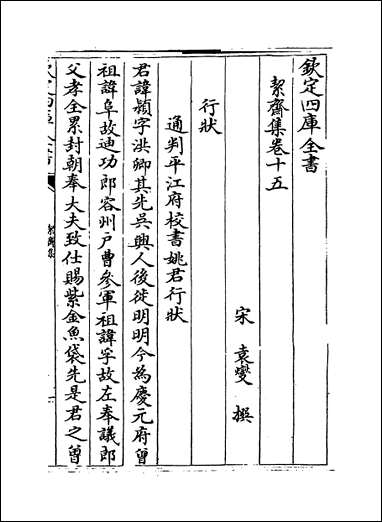 欽定四庫全書
絜齋集卷十五
宋 袁燮 撰
行狀
通判平江府校書姚君行狀
君諱穎字洪卿其先吳興人後徙明明今為慶元府曾
祖諱阜故迪功郎容州戶曹參軍祖諱孚故左奉議郎
父孝全累封朝奉大夫致仕賜紫金魚袋先是君之曾